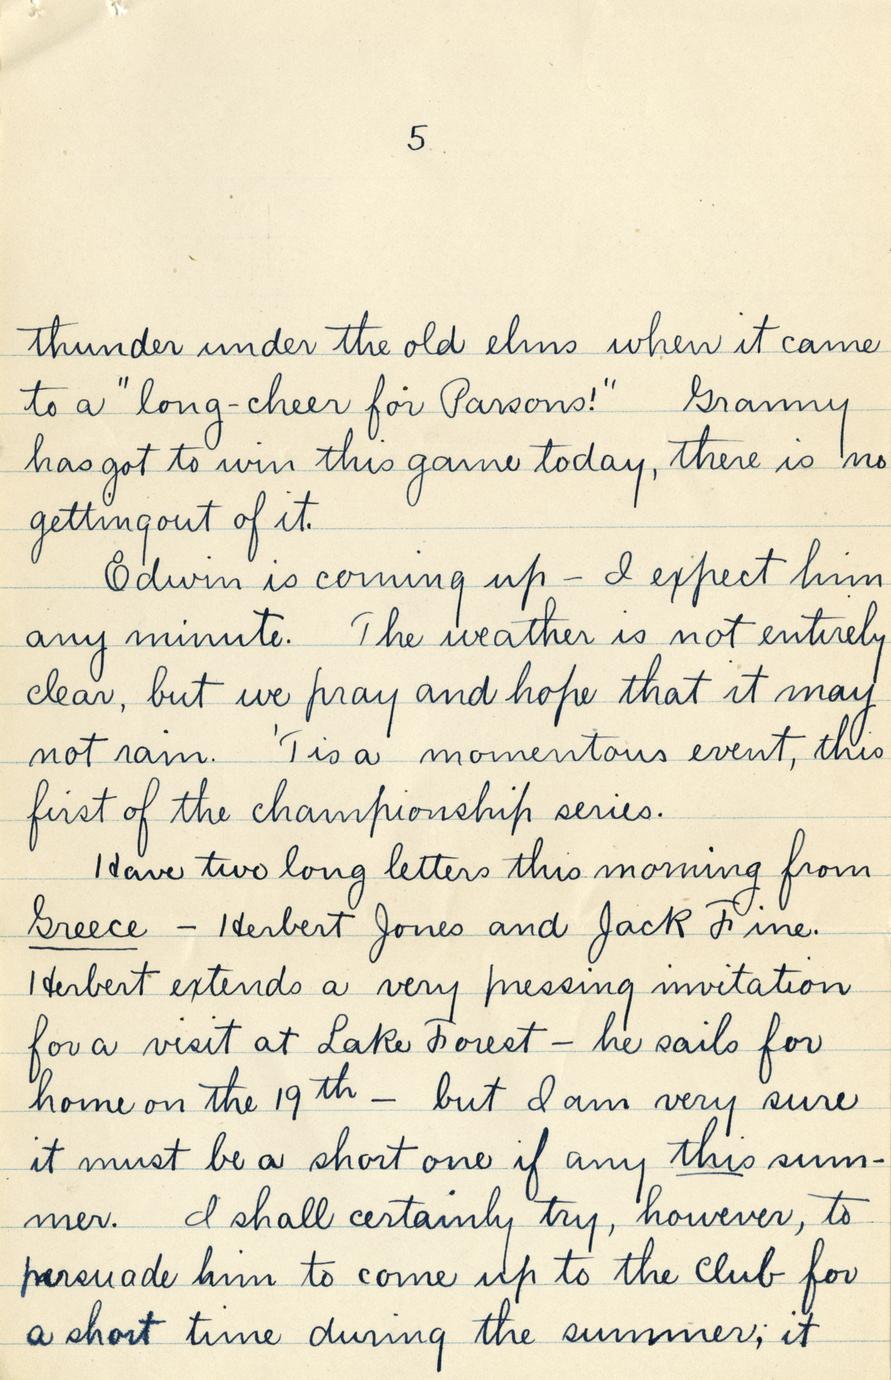 5
thunder under the old elms when it came
to a "long-cheer for Parsons!" Granny
has got to win this game today, there is no
getting out of it.
Edwin is coming up – I expect him
any minute. The weather is not entirely
clear, but we pray and hope that it may
not rain. 'Tis a momentous event, this
first of the championship series.
Have two long letters this morning from
Greece – Herbert Jones and Jack Fine.
Herbert extends a very pressing invitation
for a visit at Lake Forest – he sails for
home on the 19th – but I am very sure
it must be a short one if any this sum-
mer. I shall certainly try, however, to
persuade him to come up to the Club for
a short time during the summer; it